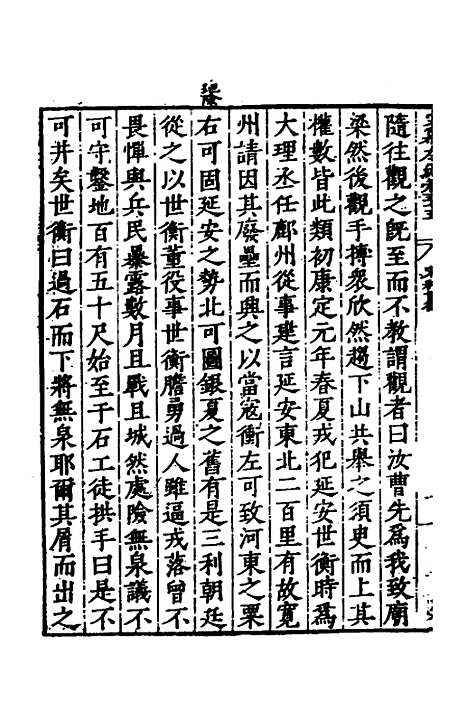 隨往觀之旣至而不教謂觀者曰汝曹先爲我致廟
梁然後觀手搏衆欣然趨下山共舉之須臾而上其
權數皆此類初康定元年春夏戎犯延安世衡時爲
大理丞任鄜州從事建言延安東北二百里有故寛
州請因其廢壘而興之以當冦衝左可致河東之粟
右可固延安之勢北可圖銀夏之舊有是三利朝廷
從之以世衡董役事世衡膽勇過人雖逼戎落曾不
畏憚與兵民暴露數月且戰且城然處險無泉議不
可守鑿地百有五十尺始至于石工徒拱手曰是不
可井矣世衡曰過石而下將無泉耶爾其屑而出之